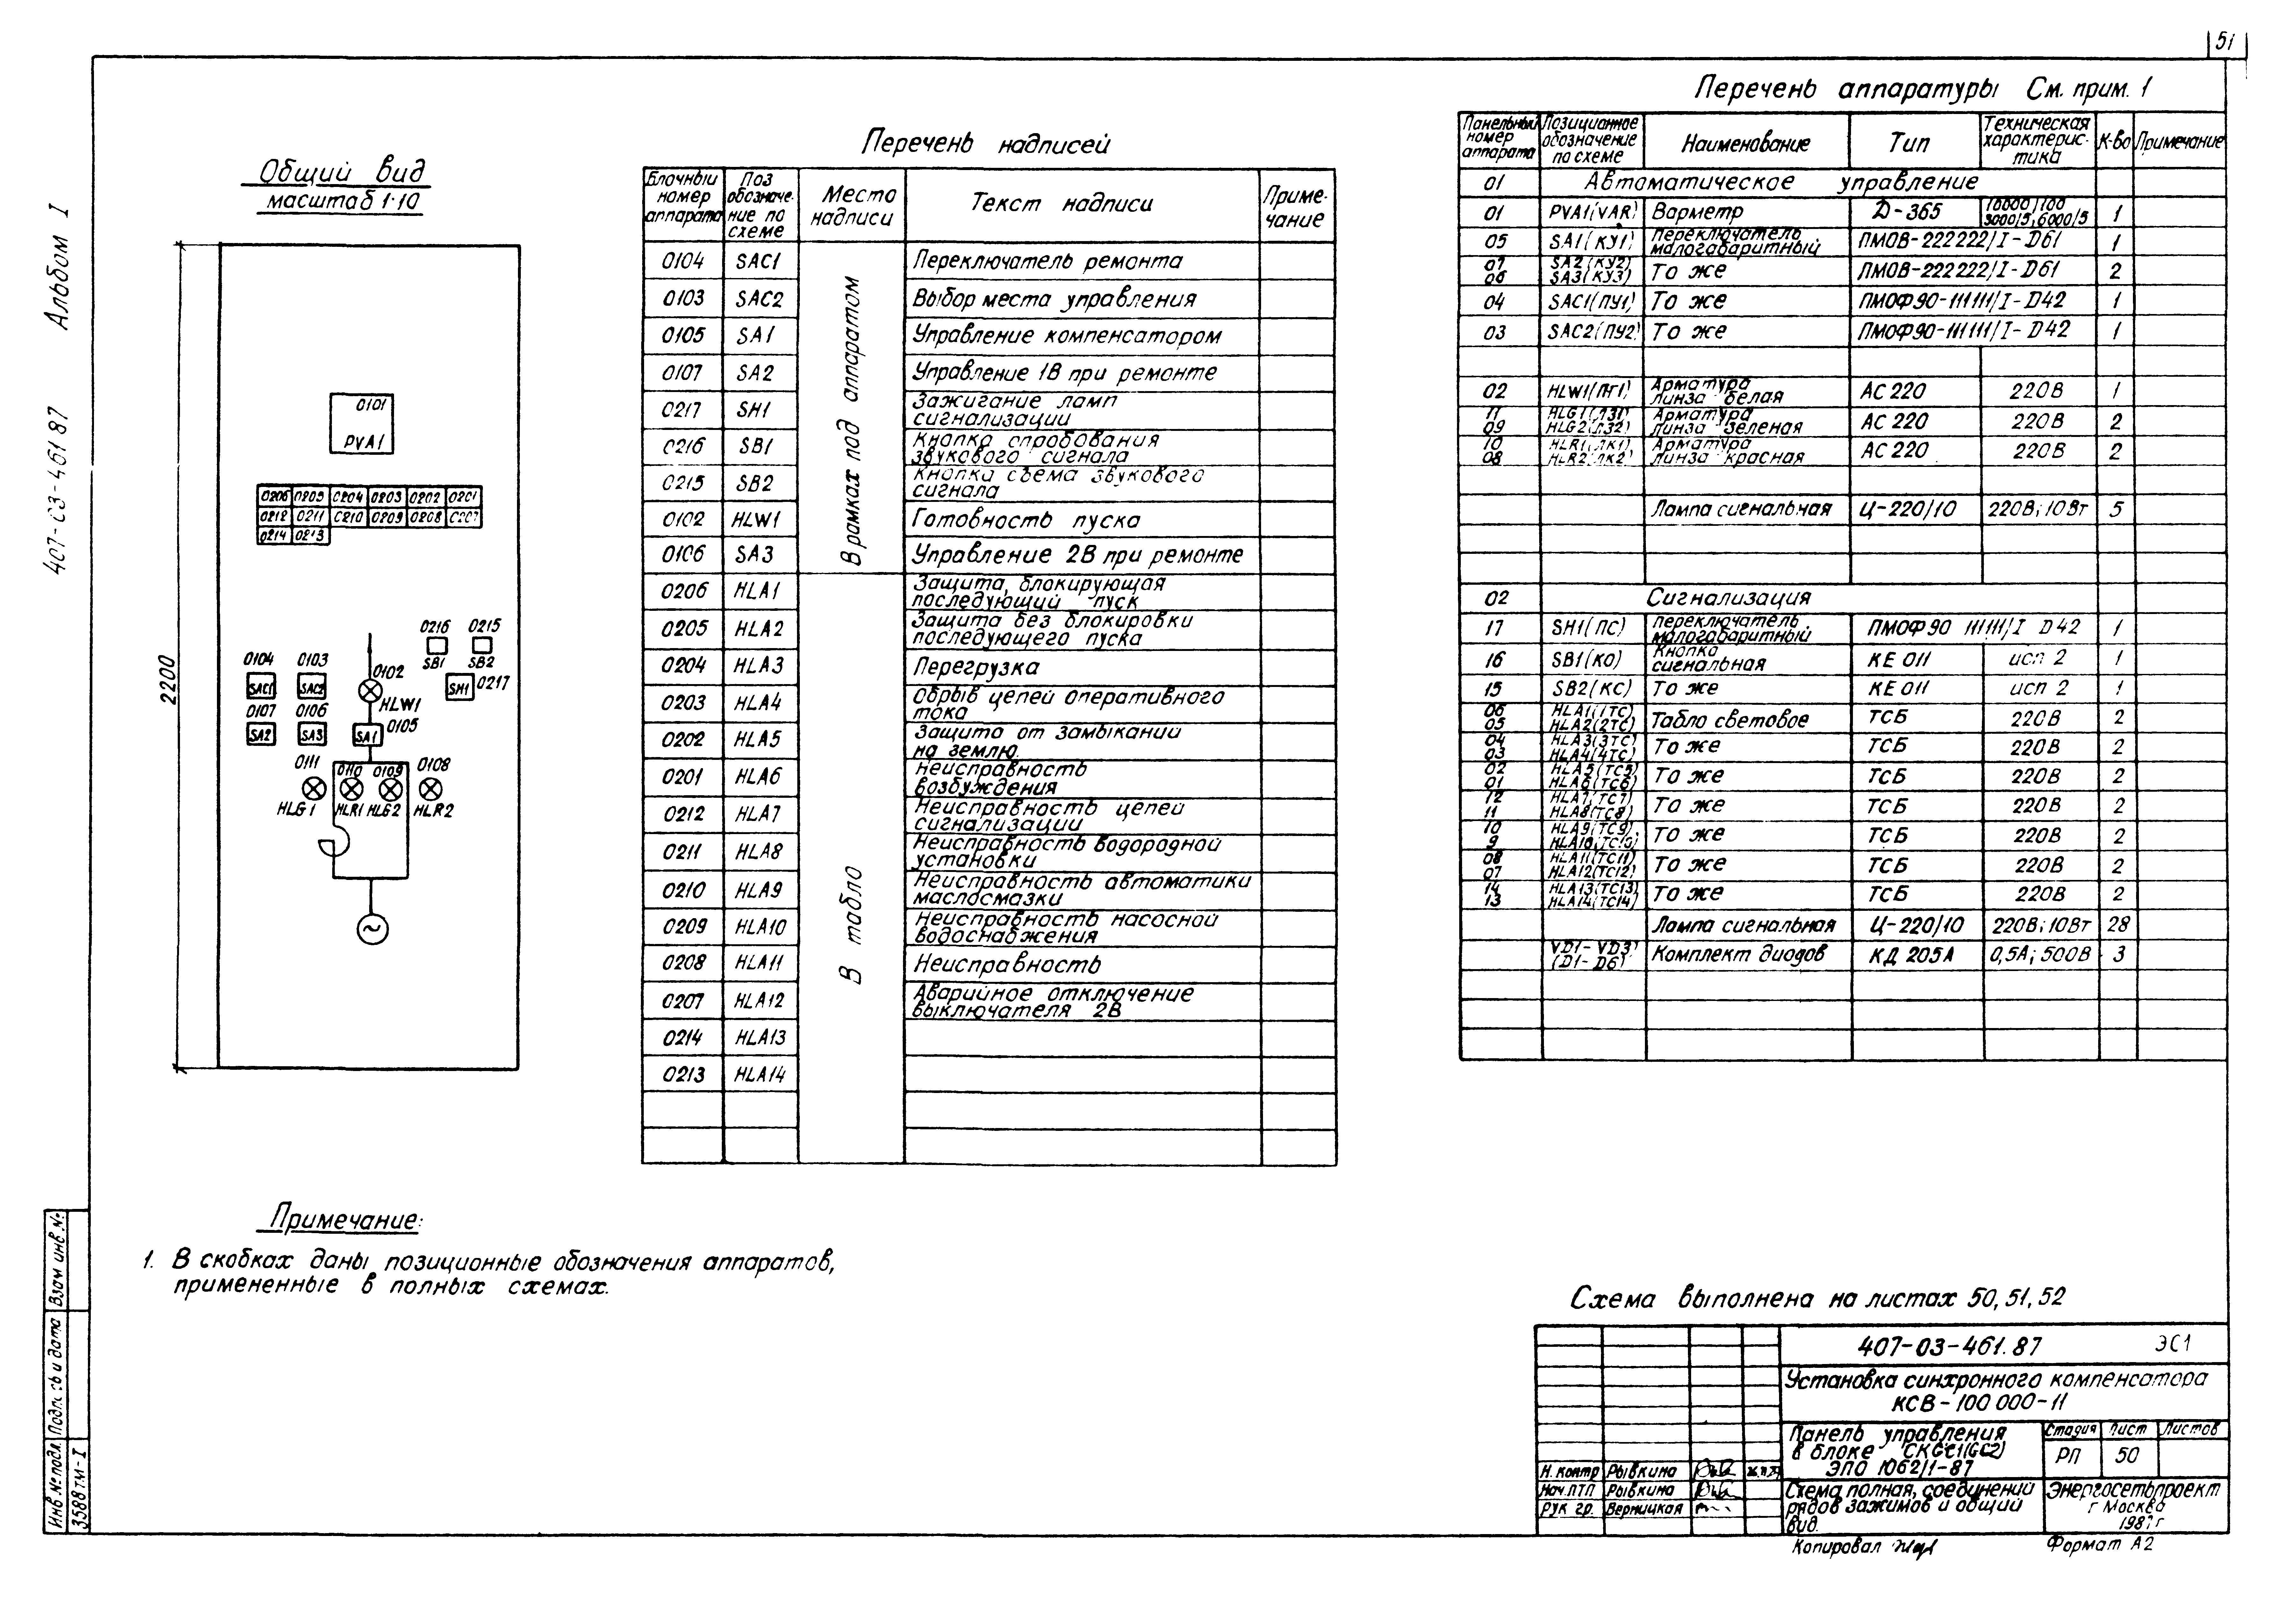 51
Альбом I
407-03-461 87
Общий вид
масштаб 1:10
2200
0101
PVA1
0206 0205 0204 0203 0202 0201
0212 0211 0210 0209 0208 0207
0214 0213
0216 0215
SB1 SB2
0104 0103 0102
SAC1 SAC2 HLW1 SH1 0217
0107 0106 0105
SA2 SA3 SA1
0111 0110 0109 0108
HLG1 HLR1 HLG2 HLR2
~
Перечень надписей
Блочный номер аппарата | Поз обозначение по схеме | Место надписи | Текст надписи | Примечание
В рамках под аппаратом
0104 SAC1 Переключатель ремонта
0103 SAC2 Выбор места управления
0105 SA1 Управление компенсатором
0107 SA2 Управление 1В при ремонте
0217 SH1 Зажигание ламп сигнализации
0216 SB1 Кнопка опробования звукового сигнала
0215 SB2 Кнопка съема звукового сигнала
0102 HLW1 Готовность пуска
0106 SA3 Управление 2В при ремонте
В табло
0206 HLA1 Защита, блокирующая последующий пуск
0205 HLA2 Защита без блокировки последующего пуска
0204 HLA3 Перегрузка
0203 HLA4 Обрыв цепей оперативного тока
0202 HLA5 Защита от замыканий на землю.
0201 HLA6 Неисправность возбуждения
0212 HLA7 Неисправность цепей сигнализации
0211 HLA8 Неисправность водородной установки
0210 HLA9 Неисправность автоматики маслосмазки
0209 HLA10 Неисправность насосной водоснабжения
0208 HLA11 Неисправность
0207 HLA12 Аварийное отключение выключателя 2В
0214 HLA13
0213 HLA14
Перечень аппаратуры См. прим. 1
Панельный номер аппарата | Позиционное обозначение по схеме | Наименование | Тип | Техническая характеристика | К-во | Примечание
01 Автоматическое управление
01 PVA1(VAR) Варметр Д-365 10000/100 3000/5; 6000/5 1
05 SA1(КУ1) Переключатель малогабаритный ПМОВ-222222/I-D61 1
07 06 SA2(КУ2) SA3(КУ3) То же ПМОВ-222222/I-D61 2
04 SAC1(ПУ1) То же ПМОФ90-111111/I-D42 1
03 SAC2(ПУ2) То же ПМОФ90-111111/I-D42 1
02 HLW1(ЛГ1) Арматура линза белая АС 220 220В 1
11 09 HLG1(ЛЗ1) HLG2(ЛЗ2) Арматура линза зеленая АС 220 220В 2
10 08 HLR1(ЛК1) HLR2(ЛК2) Арматура линза красная АС 220 220В 2
Лампа сигнальная Ц-220/10 220В; 10Вт 5
02 Сигнализация
17 SH1(ПС) Переключатель малогабаритный ПМОФ90 111111/I D42 1
16 SB1(КО) Кнопка сигнальная КЕ 011 исп 2 1
15 SB2(КС) То же КЕ 011 исп 2 1
06 05 HLA1(1ТС) HLA2(2ТС) Табло световое ТСБ 220В 2
04 03 HLA3(3ТС) HLA4(4ТС) То же ТСБ 220В 2
02 01 HLA5(ТС5) HLA6(ТС6) То же ТСБ 220В 2
12 11 HLA7(ТС7) HLA8(ТС8) То же ТСБ 220В 2
10 9 HLA9(ТС9) HLA10(ТС10) То же ТСБ 220В 2
08 07 HLA11(ТС11) HLA12(ТС12) То же ТСБ 220В 2
14 13 HLA13(ТС13) HLA14(ТС14) То же ТСБ 220В 2
Лампа сигнальная Ц-220/10 220В; 10Вт 28
VD1-VD3 (D1-D6) Комплект диодов КД 205А 0,5А; 500В 3
Примечание:
1. В скобках даны позиционные обозначения аппаратов,
примененные в полных схемах.
Схема выполнена на листах 50, 51, 52
407-03-461.87 ЭС1
Установка синхронного компенсатора
КСВ-100 000-11
Панель управления
в блоке СКGC1(GC2)
ЭПО 1062/1-87
Стадия Лист Листов
РП 50
Н. контр Рывкина
Нач. ПТП Рывкина
Рук гр. Верницкая
Схема полная, соединений
рядов зажимов и общий
вид.
Энергосетьпроект
г Москва
1987г
Копировал
Формат А2
Инв № подл. Подпись и дата Взам инв. №
3588тм-I